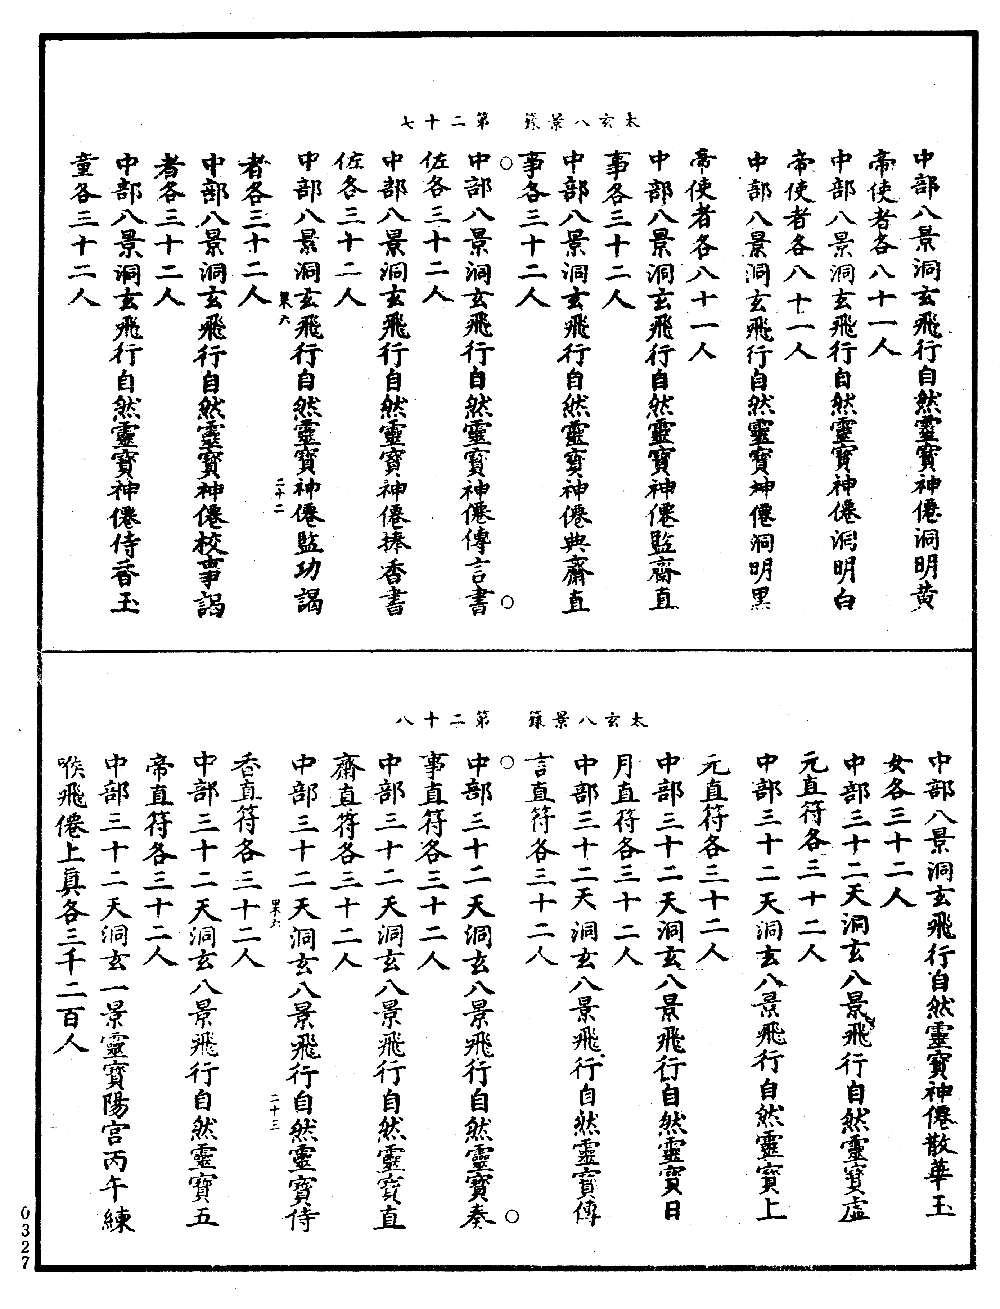 太玄八景籙　第二十七
中部八景洞玄飛行自然靈寶神僊洞明黄
帝使者各八十一人
中部八景洞玄飛行自然靈寶神僊洞明白
帝使者各八十一人
中部八景洞玄飛行自然靈寶神僊洞明黑
帝使者各八十一人
中部八景洞玄飛行自然靈寶神僊監齋直
事各三十二人
中部八景洞玄飛行自然靈寶神僊典齋直
事各三十二人
中部八景洞玄飛行自然靈寶神僊傳言書
佐各三十二人
中部八景洞玄飛行自然靈寶神僊捧香書
佐各三十二人
中部八景洞玄飛行自然靈寶神僊監功謁
果六　二十二
者各三十二人
中部八景洞玄飛行自然靈寶神僊校事謁
者各三十二人
中部八景洞玄飛行自然靈寶神僊侍香玉
童各三十二人
太玄八景籙　第二十八
中部八景洞玄飛行自然靈寶神僊散華玉
女各三十二人
中部三十二天洞玄八景飛行自然靈寶虛
元直符各三十二人
中部三十二天洞玄八景飛行自然靈寶上
元直符各三十二人
中部三十二天洞玄八景飛行自然靈寶日
月直符各三十二人
中部三十二天洞玄八景飛行自然靈寶傳
言直符各三十二人
中部三十二天洞玄八景飛行自然靈寶奏
事直符各三十二人
中部三十二天洞玄八景飛行自然靈寶直
齋直符各三十二人
中部三十二天洞玄八景飛行自然靈寶侍
果六　二十三
香直符各三十二人
中部三十二天洞玄八景飛行自然靈寶五
帝直符各三十二人
中部三十二天洞玄一景靈寶陽宮丙午練
喉飛僊上真各三千二百人
0327